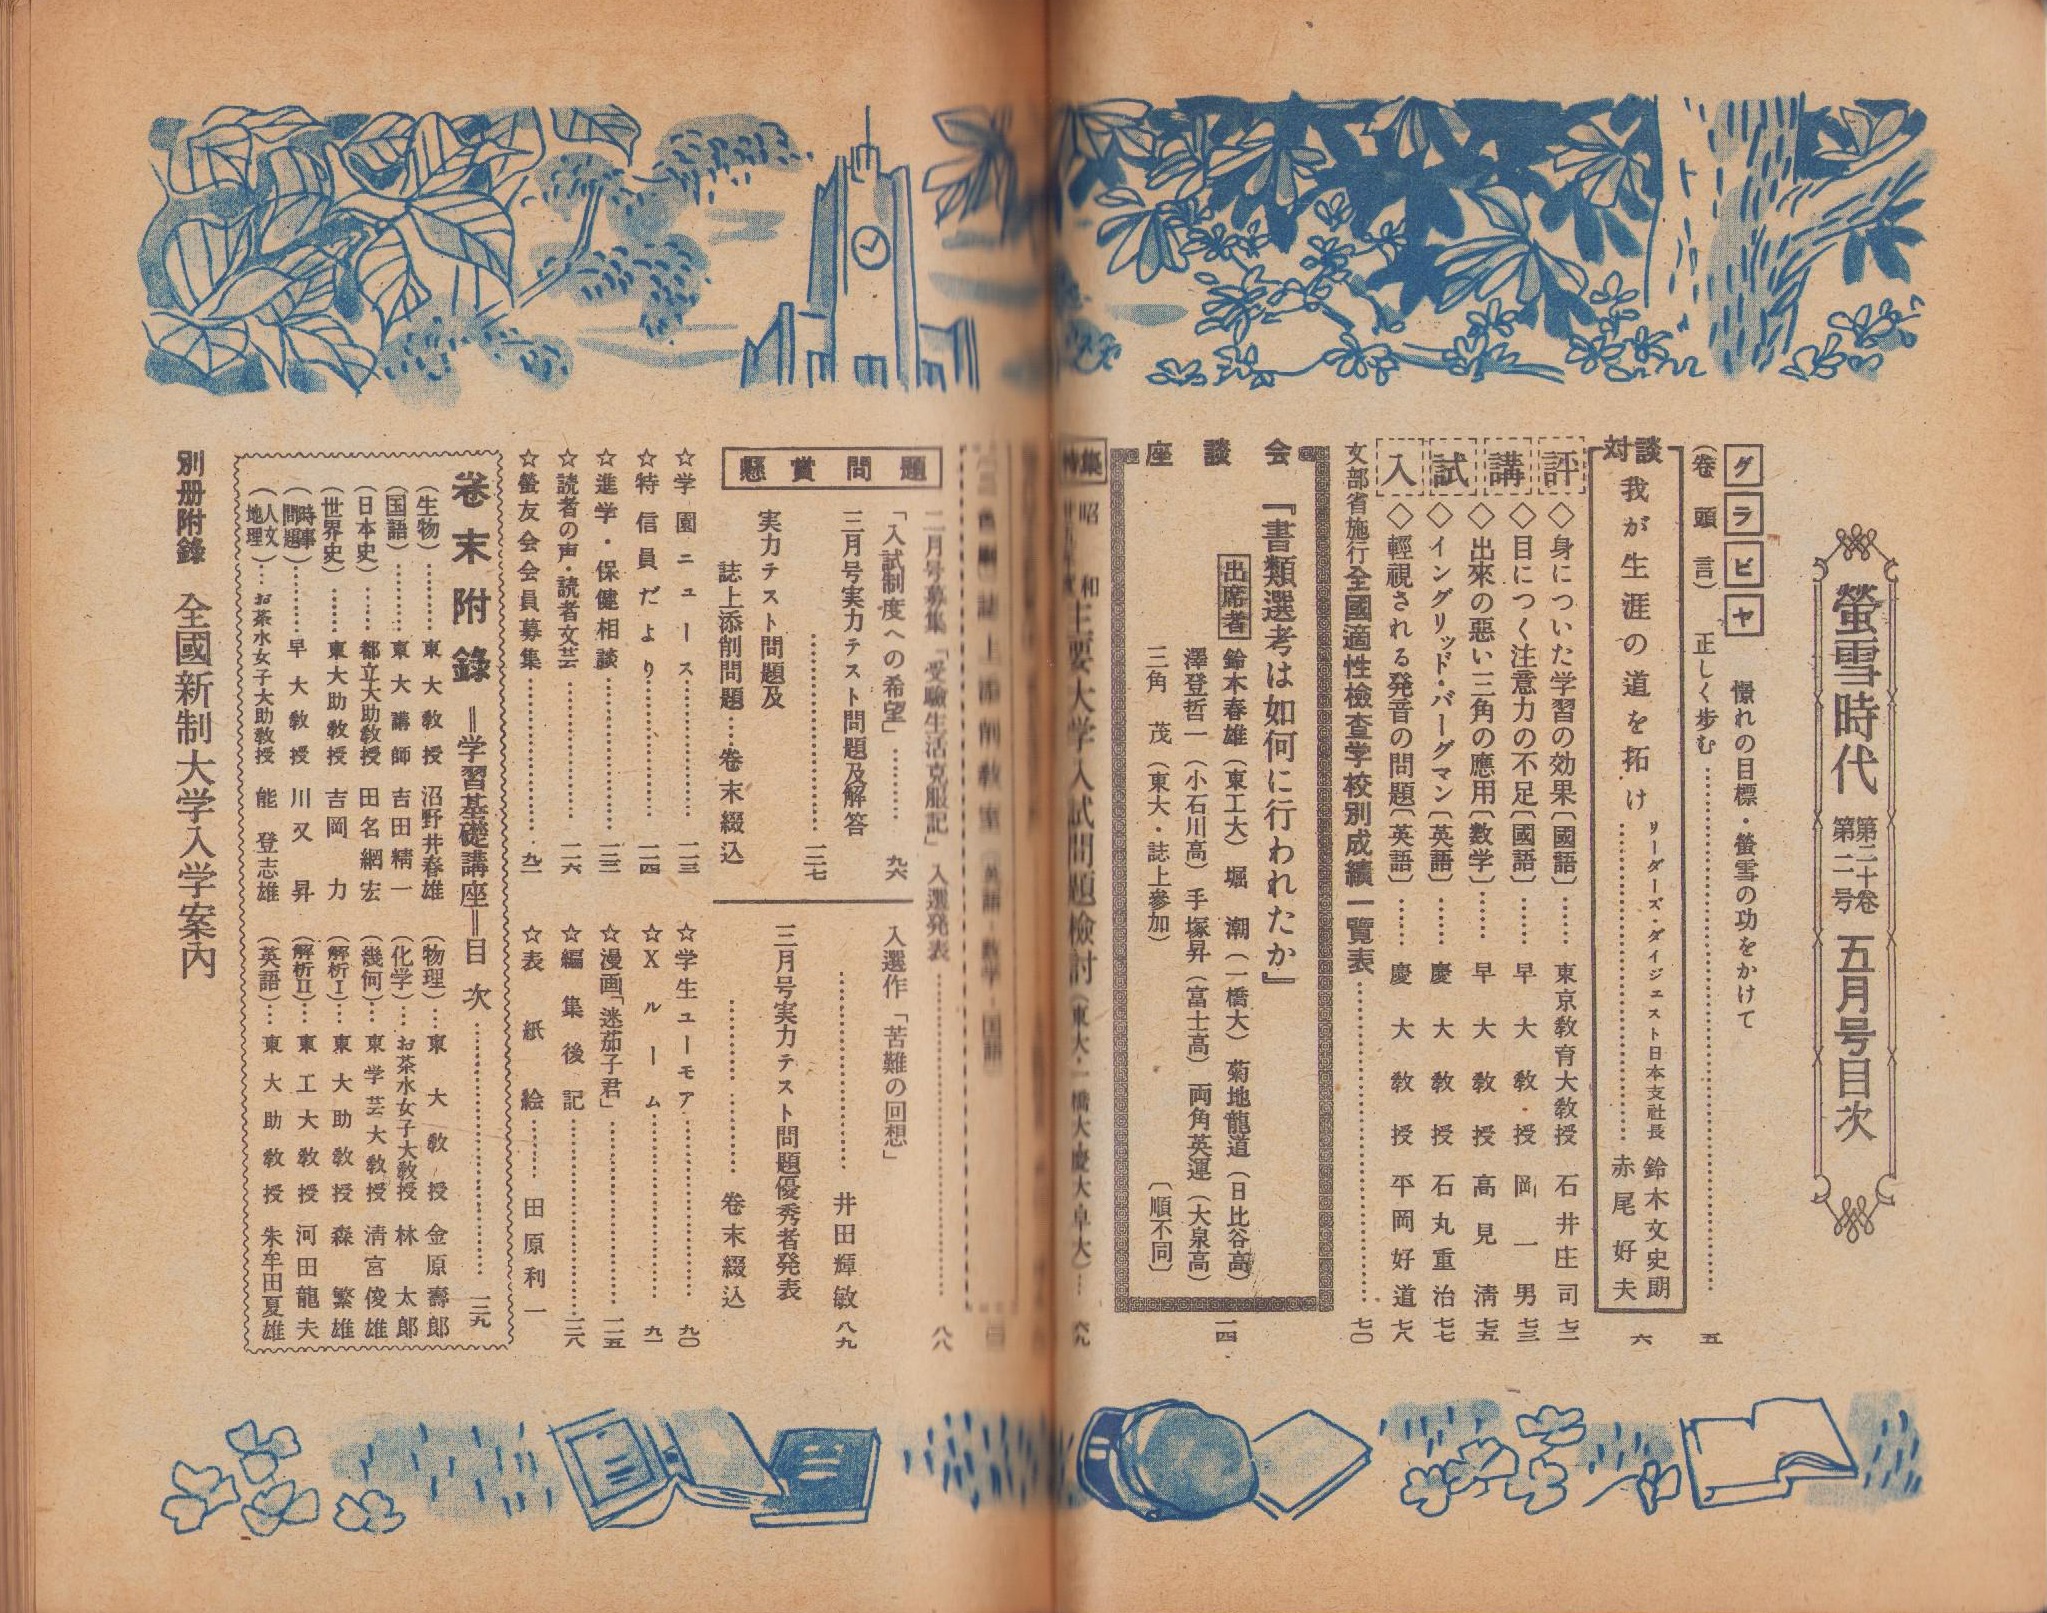 螢雪時代 第二十巻 第二号 五月号目次
グラビヤ 憬れの目標・螢雪の功をかけて
(巻頭言) 正しく歩む……五
対談 我が生涯の道を拓け……リーダーズ・ダイジェスト日本支社長 鈴木文史朗 赤尾好夫 六
入試講評
◇身についた学習の効果〔國語〕……東京教育大教授 石井庄司 七二
◇目につく注意力の不足〔國語〕……早大教授 岡一男 七三
◇出來の惡い三角の應用〔数学〕……早大教授 高見清 七五
◇イングリッド・バーグマン〔英語〕……慶大教授 石丸重治 七七
◇輕視される発音の問題〔英語〕……慶大教授 平岡好道 七八
文部省施行全國適性檢査学校別成績一覽表……七〇
座談会
『書類選考は如何に行われたか』……一四
出席者 鈴木春雄(東工大) 堀潮(一橋大) 菊地龍道(日比谷高)
澤登哲一(小石川高) 手塚昇(富士高) 両角英運(大泉高)
三角茂(東大・誌上参加) 〔順不同〕
昭和 主要大学入試問題檢討(東大・一橋大・慶大・早大)…六九
懸賞問題
二月号募集「受驗生活克服記」入選発表……八八
「入試制度への希望」……九六
入選作「苦難の回想」……井田輝敏 八九
三月号実力テスト問題及解答……一二七
三月号実力テスト問題優秀者発表……卷末綴込
実力テスト問題及
誌上添削問題……卷末綴込
☆学園ニュース……一二三
☆特信員だより……一二四
☆進学・保健相談……一二三
☆読者の声・読者文芸……一二六
☆螢友会会員募集……九一
☆学生ユーモア……九〇
☆Xルーム……九一
☆漫画「迷茄子君」……一二五
☆編集後記……一二八
☆表紙絵……田原利一
卷末附錄 =学習基礎講座=目次……一二九
(生物)……東大教授 沼野井春雄
(国語)……東大講師 吉田精一
(日本史)……都立大助教授 田名網宏
(世界史)……東大助教授 吉岡力
(時事問題)……早大教授 川又昇
(人文地理)…お茶水女子大助教授 能登志雄
(物理)…東大教授 金原壽郎
(化学)…お茶水女子大教授 林太郎
(幾何)…東学芸大教授 清宮俊雄
(解析Ⅰ)…東大助教授 森繁雄
(解析Ⅱ)…東工大教授 河田龍夫
(英語)…東大助教授 朱牟田夏雄
別册附錄 全國新制大学入学案內